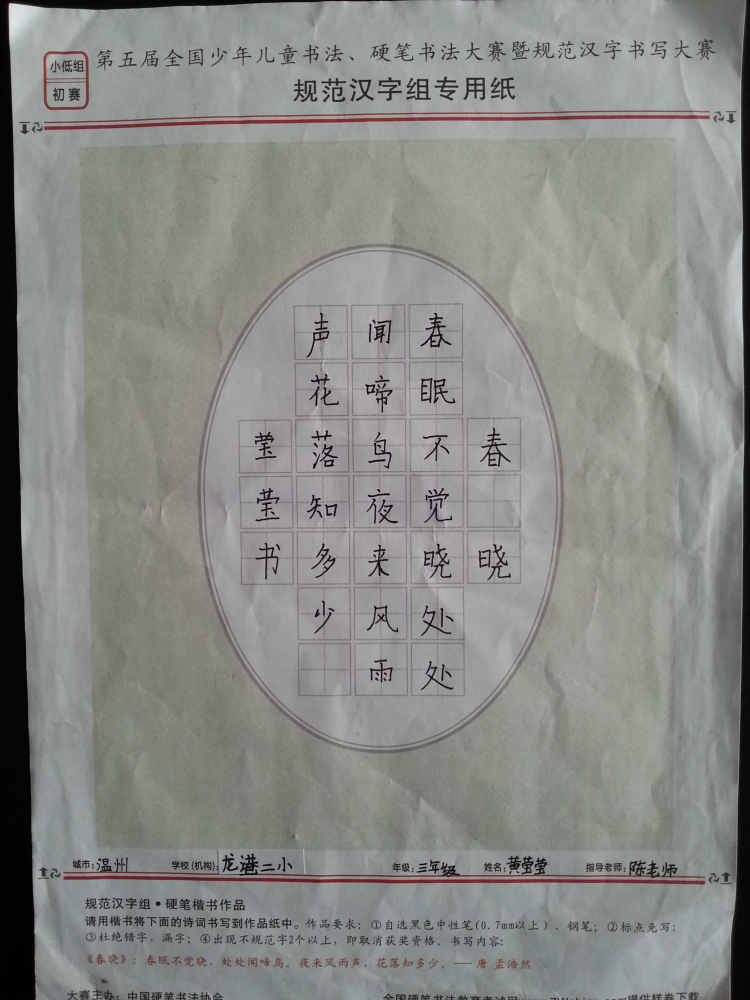 小低组
初赛
第五届全国少年儿童书法、硬笔书法大赛暨规范汉字书写大赛
规范汉字组专用纸
春晓
春眠不觉晓处处
闻啼鸟夜来风雨
声花落知多少
莹莹书
城市:温州 学校(机构):龙港二小 年级:三年级 姓名:黄莹莹 指导老师:陈老师
规范汉字组•硬笔楷书作品
请用楷书将下面的诗词书写到作品纸中。作品要求:①自选黑色中性笔(0.7mm以上)、钢笔;②标点免写;
③杜绝错字、漏字;④出现不规范字2个以上,即取消获奖资格。书写内容:
《春晓》:春眠不觉晓,处处闻啼鸟。夜来风雨声,花落知多少。——唐 孟浩然
大赛主办:中国硬笔书法协会
提供样卷下载